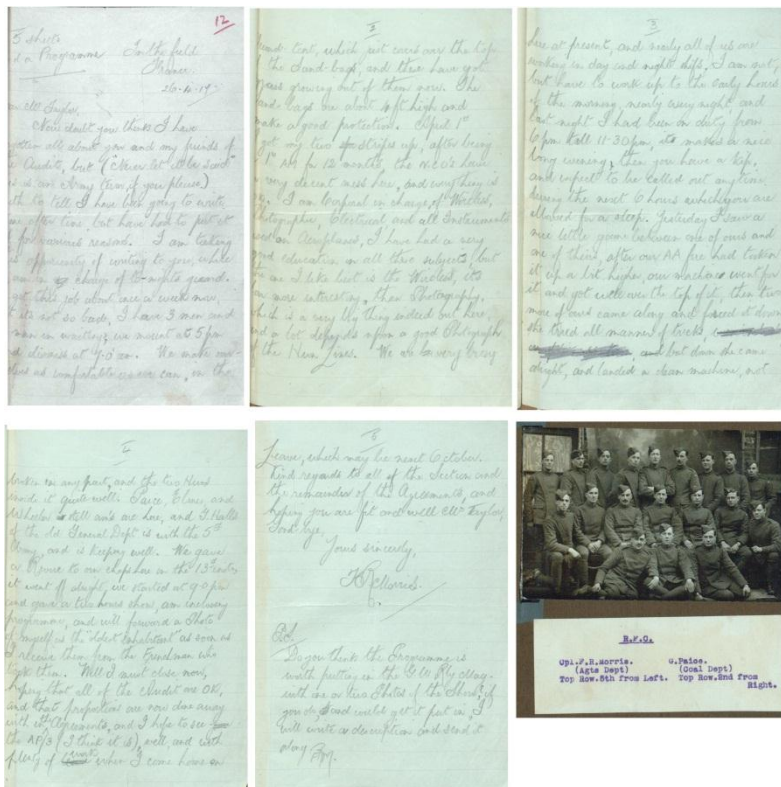 12
5 sheets
Programme In the field
France
26-4-17
Mr Taylor,
Now doubt you think I have
all about you and my friends of
Audit, but ("Never let it be said"
is our Army term, if you please)
to tell I have been going to write
time after time, but have had to put it
for various reasons. I am taking
opportunity of writing to you, while
am in charge of to-nights guard.
got this job about once a week now,
it's not so bad, I have 3 men and
man in waiting; we mount at 5 pm
dismiss at 7-0 am. We make our
as comfortable as we can, in the
2
tent, which just covers over the top
of the sand bags, and there have got
grass growing out of them now. The
sand bags are about 4 ft high and
make a good protection. April 1st
got my two stripes up, after being
1st AM for 12 months, the N.C.O's have
very decent mess here, and everything is
I am Corporal in charge, of Wireless,
Photographic, Electrical and all Instruments
used on Aeroplanes, I have had a very
good education in all these subjects, but
the one I like best is the Wireless, its
more interesting, then Photography,
which is a very big thing indeed out here,
and a lot depends upon a good Photograph
of the Hun Lines. We are very busy
3
here at present, and nearly all of us are
working in day and night shifts. I am not,
but have to work up to the early hours
of the morning, nearly every night and
last night I had been on duty from
6 pm till 11-30 pm, its makes a nice
long evening; then you have a kip,
and expect to be called out any time
during the next 6 hours which you are
allowed for a sleep. Yesterday I saw a
nice little game between one of ours and
one of theirs, after our AA fire had turken
it up a bit higher, our machine went for
it and got well over the top of it, then two
more of ours came along and forced it down
she tried all manner of tricks,
and but down she came
alright, and landed a clean machine, not
4
broken in any part, and the two Huns
quite well. Paice, Elms, and
Wheeler still are here, and G. Halls
of the old General Dept is with the 5th
Army, and is keeping well. We gave
a Revue to our chaps here on the 13th inst
it went off alright, we started at 9-0 pm
and gave a two hours show, am enclosing
programme, and will forward a Photo
of myself as the "oldest Inhabitant" as soon as
I receive them from the Frenchman who
took them. Well I must close now,
hoping that all of the Audit are OK,
and that proportions are now done away
with in Agreements, and I hope to see
the AP/3 (I think it is), well, and with
plenty of work when I come home on
5
Leave, which may be next October.
Kind regards to all of the Section and
the remainder of the Agreements, and
hoping you are fit and well Mr Taylor,
Good bye,
Yours sincerely,
F.R. Morris.
P.S.
Do you think the Programme is
worth putting in the G.W. Rly Mag.
with one or two Photos of the Show; if
good, and could get it put in, I
will write a description and send it
along. FRM.
R.F.C.
Cpl.F.R.Morris. W.Paice.
(Agts Dept) (Coal Dept)
Top Row.5th from Left. Top Row.2nd from
Right.